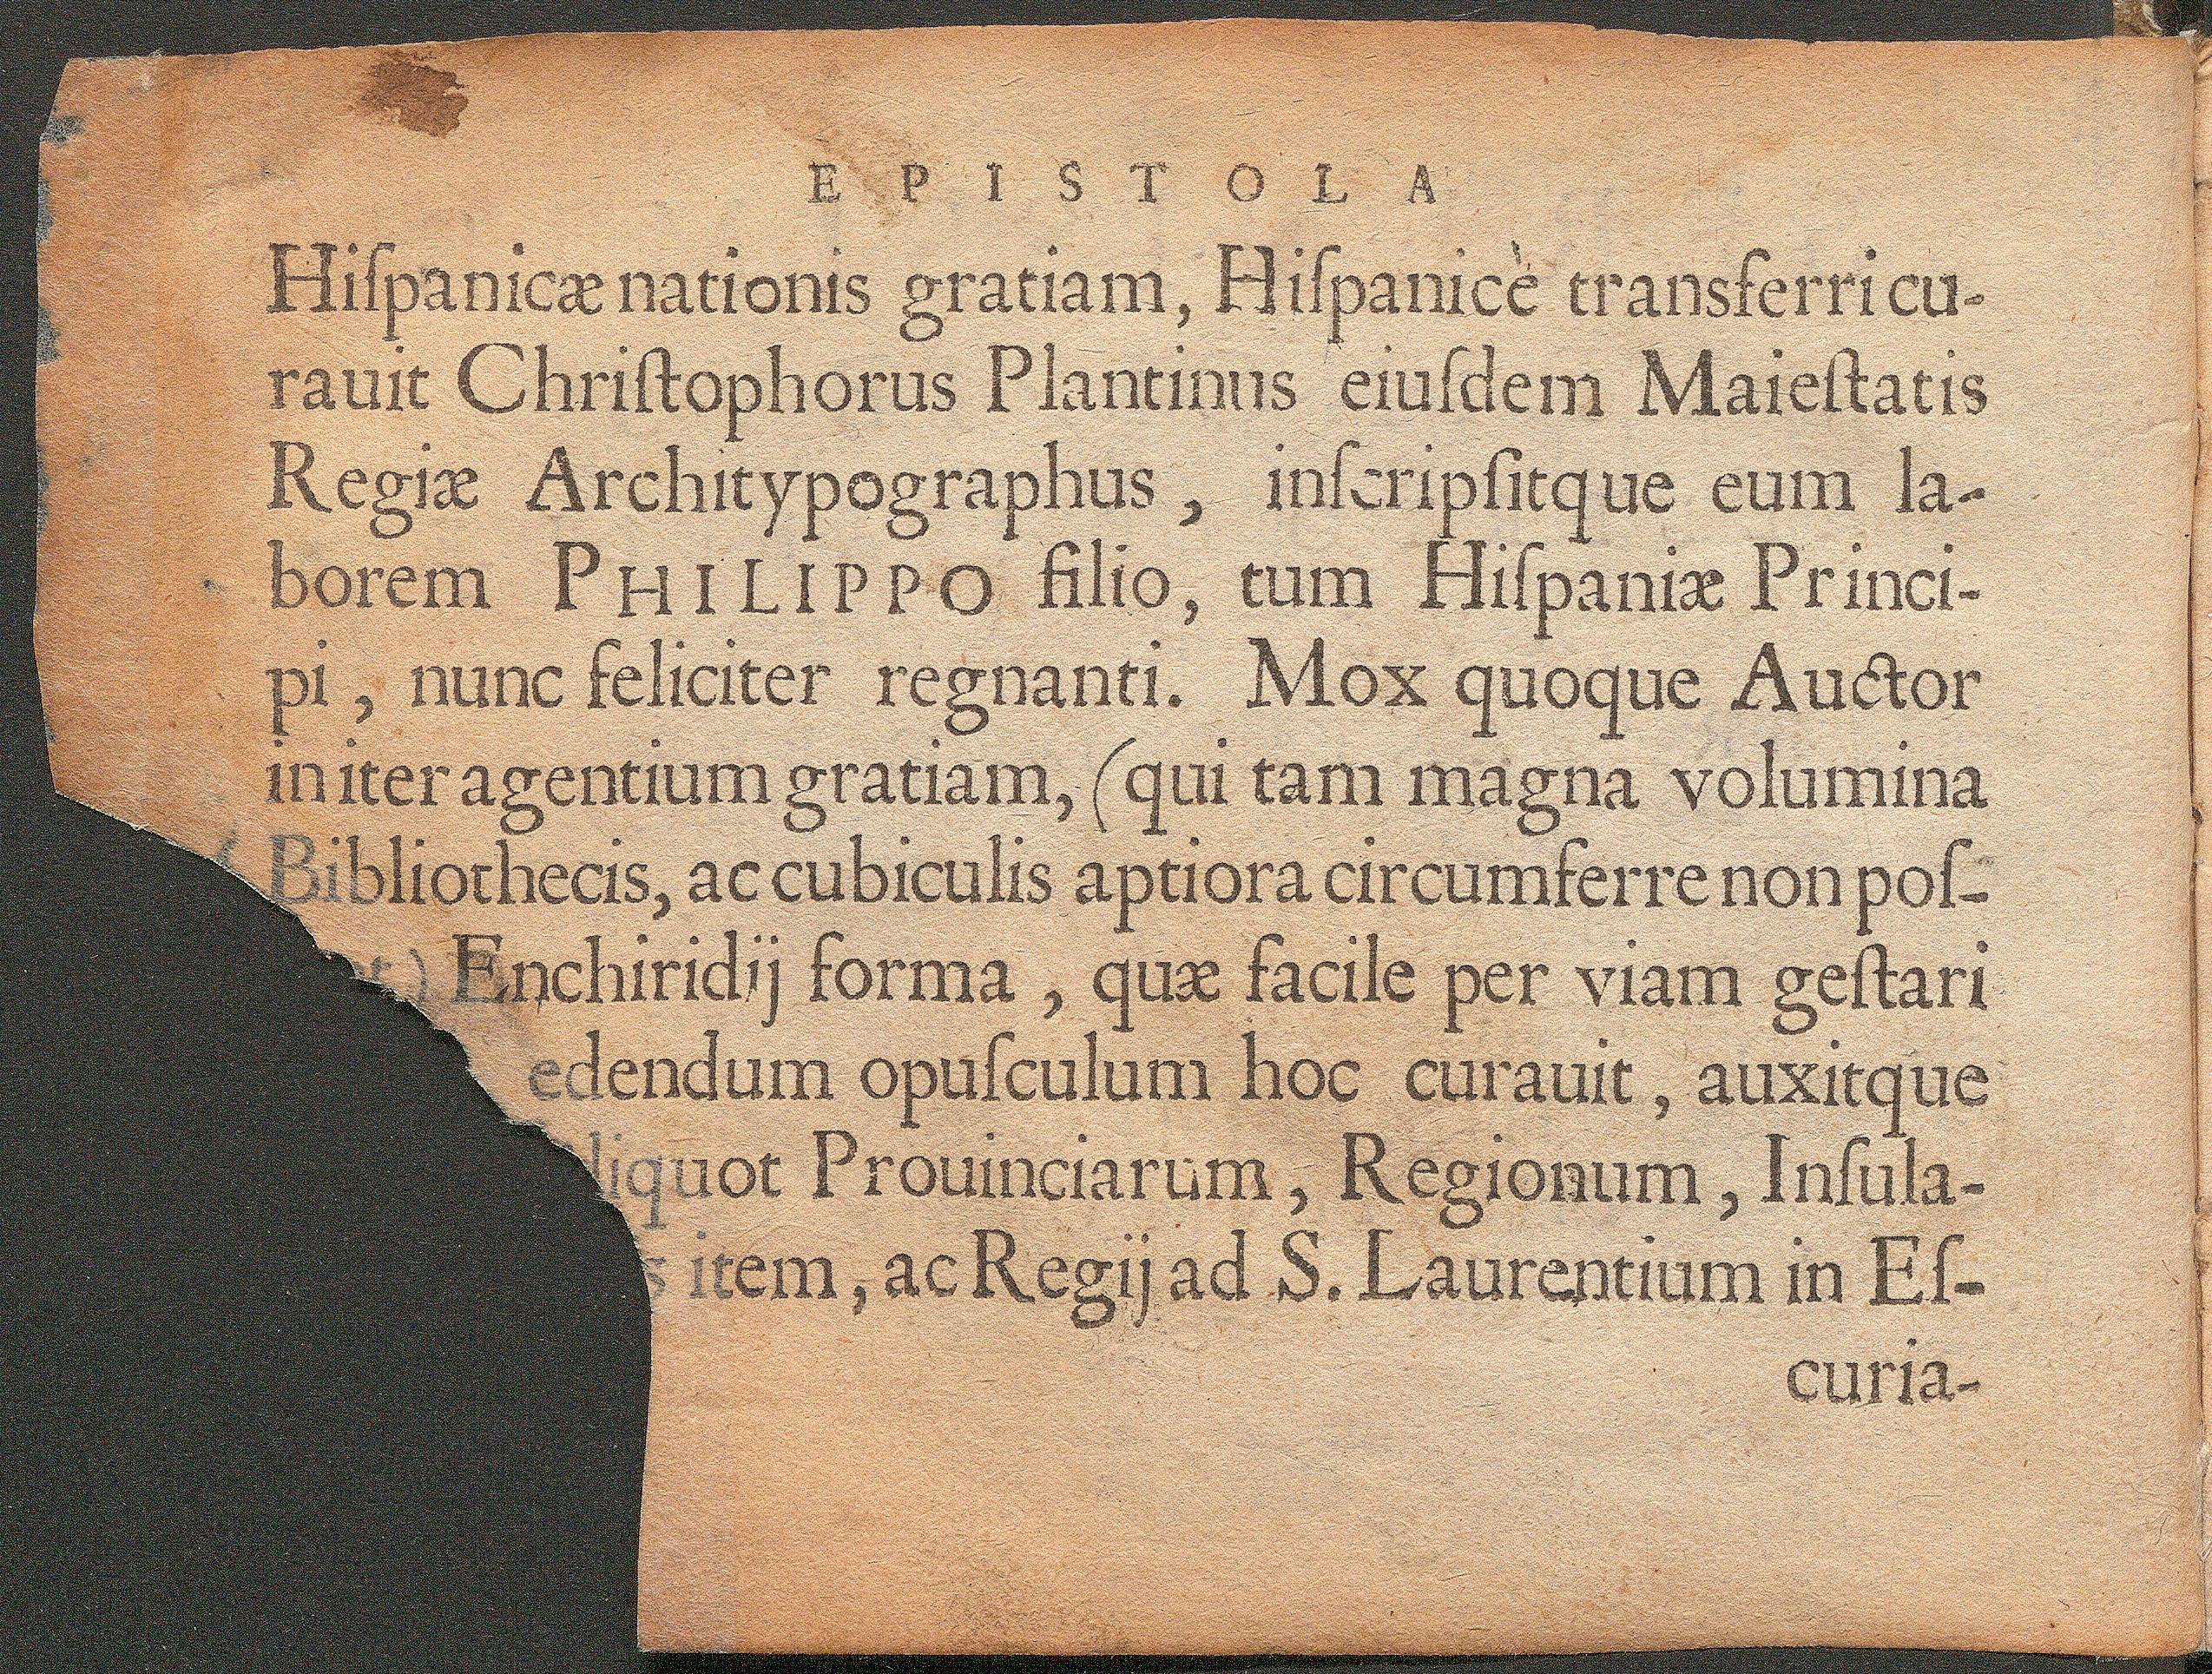 EPISTOLA
Hiſpanicæ nationis gratiam, Hiſpanicè transferri cu-
rauit Chriſtophorus Plantinus eiuſdem Maieſtatis
Regiæ Architypographus, inſcripſitque eum la-
borem PHILIPPO filio, tum Hiſpaniæ Princi-
pi, nunc feliciter regnanti. Mox quoque Auctor
in iter agentium gratiam, (qui tam magna volumina
Bibliothecis, ac cubiculis aptiora circumferre non poſ-
Enchiridij forma, quæ facile per viam geſtari
edendum opuſculum hoc curauit, auxitque
liquot Prouinciarum, Regionum, Inſula-
s item, ac Regij ad S. Laurentium in Eſ-
curia-